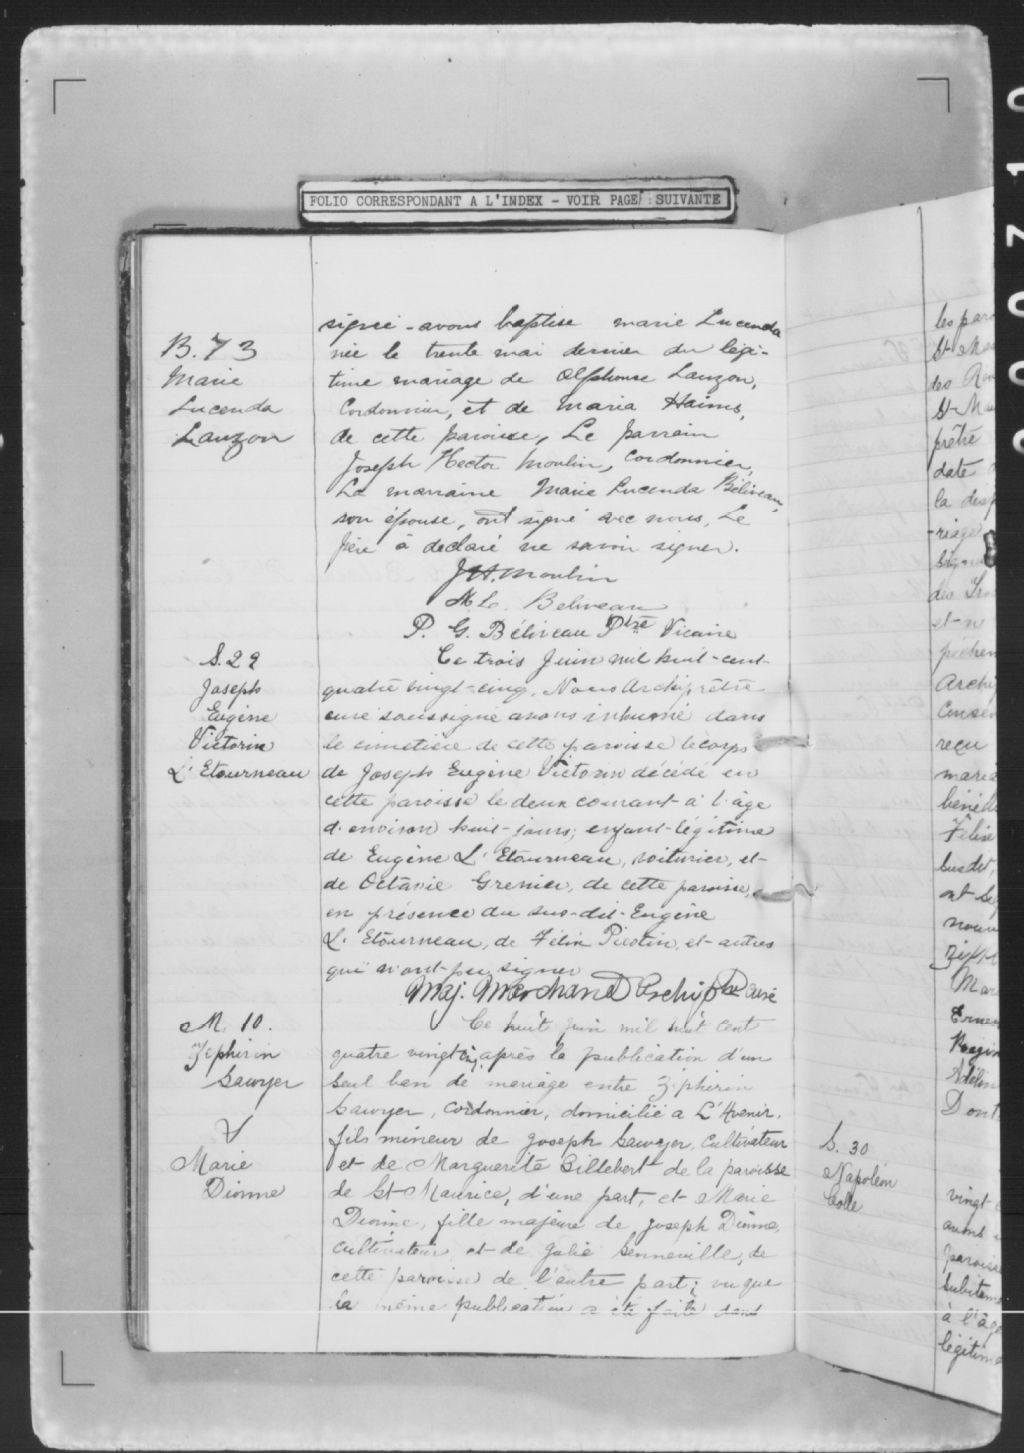 FOLIO CORRESPONDANT A L'INDEX - VOIR PAGE SUIVANTE
B. 73
Marie
Lucenda
Lauzon
signé - avons baptise marie Lucenda
née le trente mai dernier du légi-
time mariage de Alphonse Lauzon,
Cordonnier, et de Maria Haims,
de cette paroisse, Le parrain
Joseph Hector Moulin, cordonnier,
La marraine Marie Lucenda Béliveau,
son épouse, ont signé avec nous, Le
père a declaré ne savoir signer.
J.H. Moulin
M L. Beliveau
P. G. Béliveau Ptre Vicaire
S. 29
Joseph
Eugène
Victorin
L'Etourneau
Ce trois Juin mil huit-cent-
quatre vingt-cinq, Nous Archiprêtre
curé soussigné avons inhumé dans
le cimetière de cette paroisse le corps
de Joseph Eugène Victorin décédé en
cette paroisse le deux courant à l'âge
d'environ huit-jours, enfant-légitime
de Eugène L'Etourneau, voiturier, et-
de Octavie Grenier, de cette paroisse,
en présence du sus-dit-Eugène
L'Etourneau, de Félix Picotin, et-autres
qui n'ont-pu signer
Maj. Marchand Archiptre curé
M. 10.
Zéphirin
Sawyer
&
Marie
Dionne
Ce huit juin mil huit cent
quatre vingt cinq, après la publication d'un
seul ban de mariage entre Zéphirin
Sawyer, cordonnier, domicilié a L'Avenir,
fils mineur de Joseph Sawyer, Cultivateur
et de Marguerite Billebert de la paroisse
de St Maurice, d'une part, et Marie
Dionne, fille majeure de Joseph Dionne,
cultivateur, et de Julie Senneville, de
cette paroisse de l'autre part; vu que
la même publication a été faite dans
S. 30
Napoléon
Colle
les paro
St Mau
des
St-Mau
prêtre
date
la disp
-riage
des
et-ne
pêchem
Archi
Conse
reçu
maria
bénéd
Félix
susdit,
ont sig
Mar
Ernes
Adélin
Dont
vingt
avons
paroisse
subitem
à l'âge
légitime